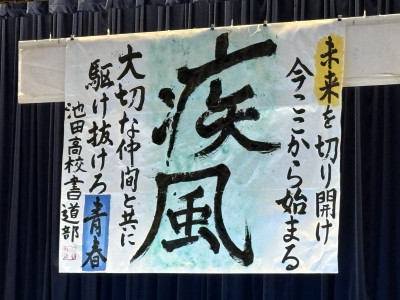 未来を切り開け
今ここから始まる
疾風
大切な仲間と共に
駆け抜けろ青春
池田高校書道部